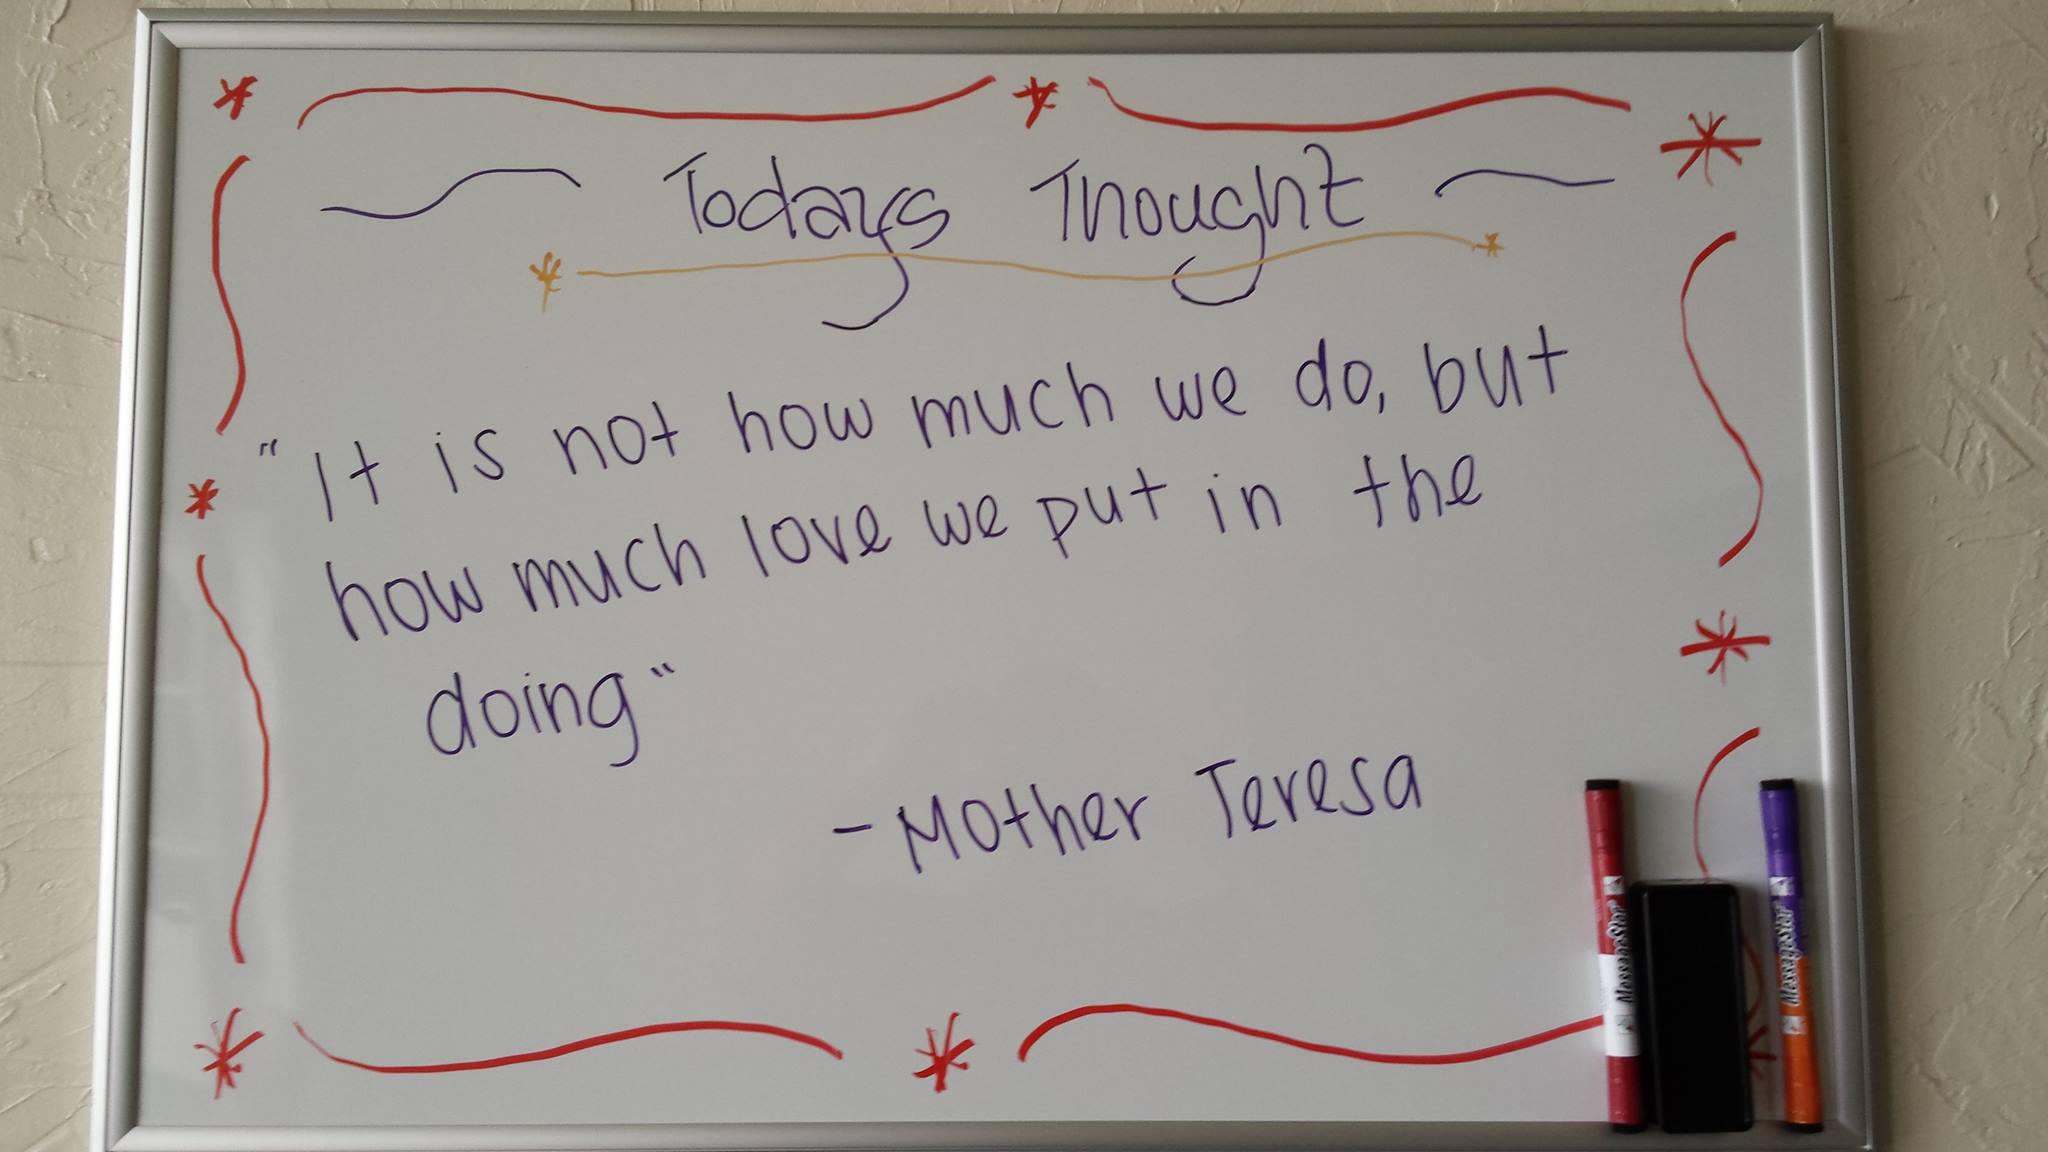 Todays Thought
"It is not how much we do, but
how much love we put in the
doing"
- Mother Teresa
MessageStor
MessageStor